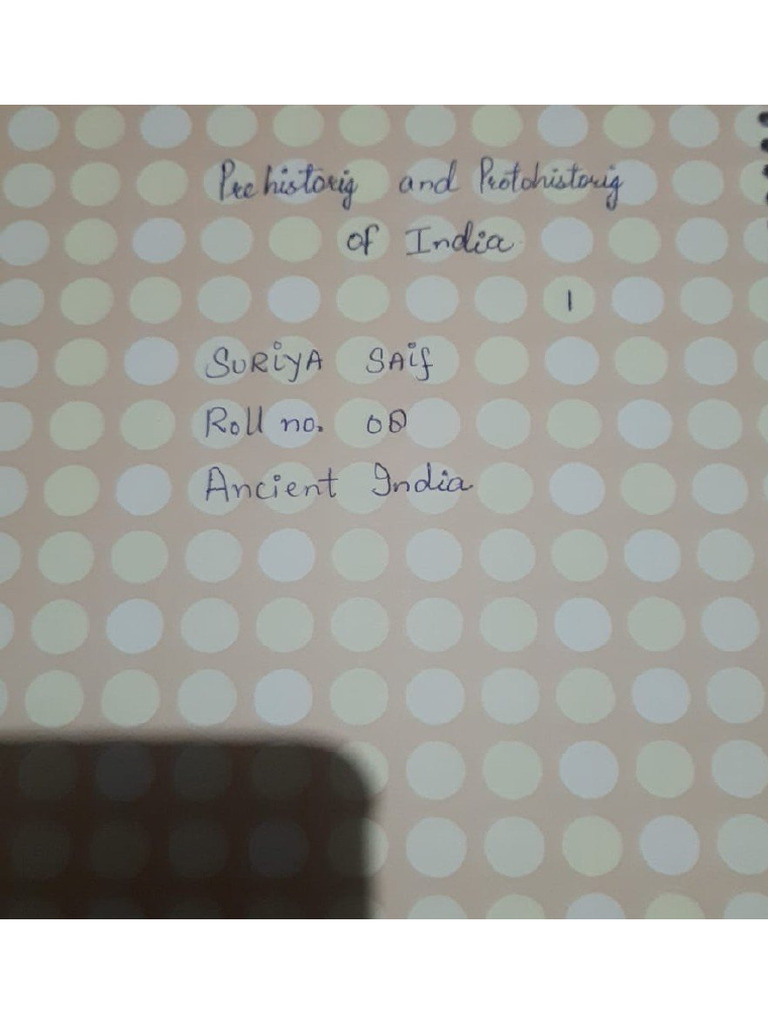 Prehistorig and Protohistorig
of India
1
SURiYA SAif
Roll no. 08
Ancient India